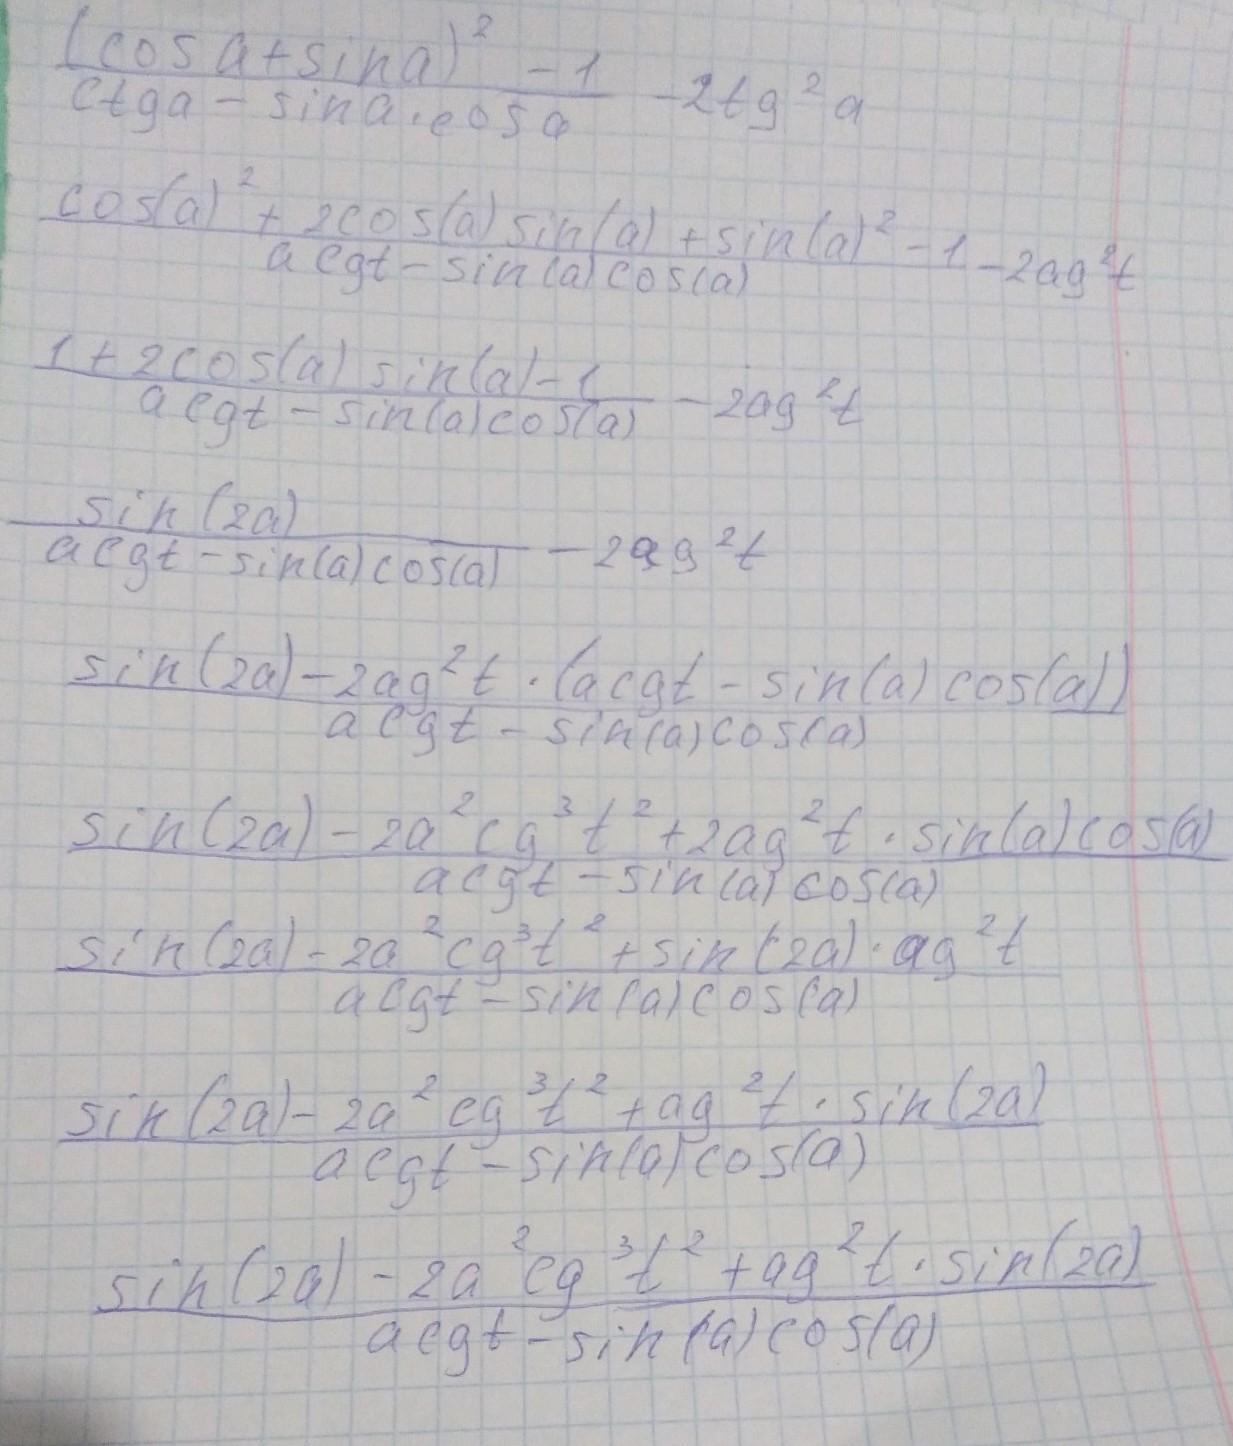 (cos a + sin a)² - 1
ctga - sina · cosa
- 2tg²a
cos(a)² + 2cos(a) sin(a) + sin(a)² - 1
acgt - sin(a)cos(a)
- 2ag²t
1 + 2cos(a) sin(a) - 1
acgt - sin(a)cos(a)
- 2ag²t
sin(2a)
acgt - sin(a)cos(a)
- 2ag²t
sin(2a) - 2ag²t · (acgt - sin(a)cos(a))
acgt - sin(a)cos(a)
sin(2a) - 2a²cg³t² + 2ag²t · sin(a)cos(a)
acgt - sin(a)cos(a)
sin(2a) - 2a²cg³t² + sin(2a) · ag²t
acgt - sin(a)cos(a)
sin(2a) - 2a²cg³t² + ag²t · sin(2a)
acgt - sin(a)cos(a)
sin(2a) - 2a²cg³t² + ag²t · sin(2a)
acgt - sin(a)cos(a)